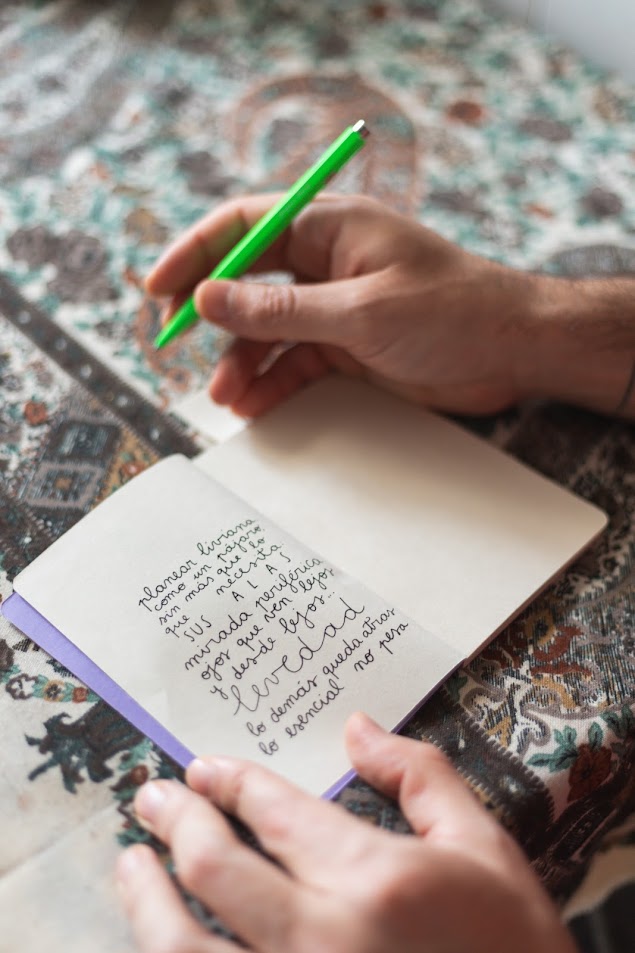 planear liviana
como un pájaro,
sin más que lo
que necesita
SUS ALAS
mirada periférica
ojos que ven lejos
y desde lejos...
levedad
lo demás queda atrás
lo esencial no pesa